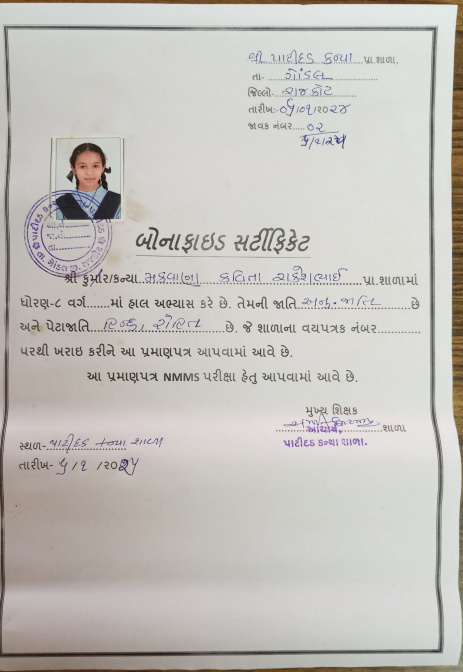 શ્રી પાટીદડ કન્યા પ્રા.શાળા,
તા- ગોંડલ
જિલ્લો- રાજકોટ
તારીખ:-૦૫/૦૧/૨૦૨૪
જાવક નંબર.....૦૨
બોનાફાઇડ સર્ટીફિકેટ
શ્રી કુમાર/કન્યા મકવાણા કવિતા રાકેશભાઈ પ્રા.શાળામાં
ધોરણ-૮ વર્ગ......માં હાલ અભ્યાસ કરે છે. તેમની જાતિ અનુ.જાતિ છે
અને પેટાજાતિ હિન્દુ, રોહિત છે. જે શાળાના વયપત્રક નંબર............
પરથી ખરાઇ કરીને આ પ્રમાણપત્ર આપવામાં આવે છે.
આ પ્રમાણપત્ર NMMS પરીક્ષા હેતુ આપવામાં આવે છે.
મુખ્ય શિક્ષક
આચાર્ય શાળા
પાટીદડ કન્યા શાળા.
સ્થળ- પાટીદડ કન્યા શાળા
તારીખ- ૫/૧ /૨૦૨૪